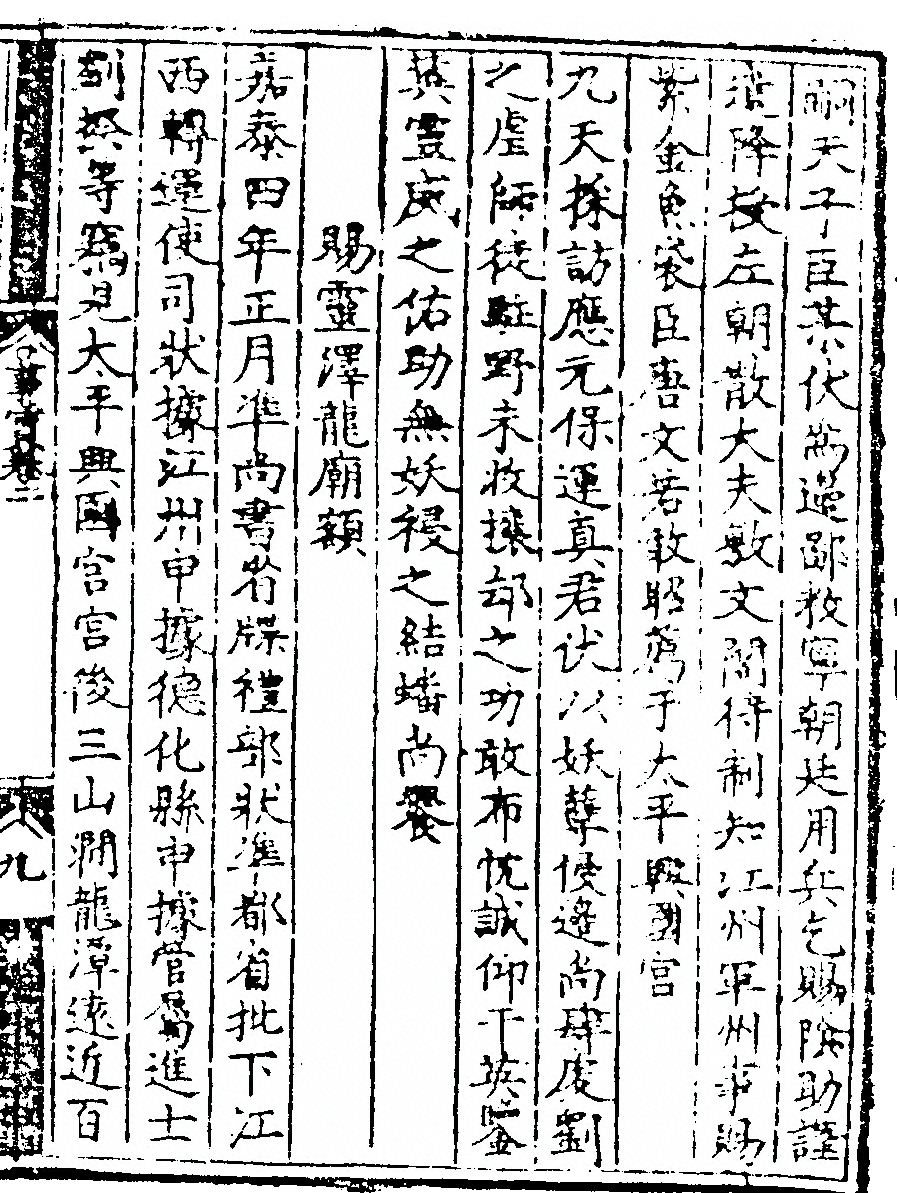 嗣天子臣某伏為邊鄙救寧朝廷用兵乞賜陰助謹
差降授左朝散大夫敷文閣待制知江州軍州事賜
紫金魚袋臣唐文若敢昭薦于太平興國宮
九天採訪應元保運真君伏以妖孽侵遙尚肆虔劉
之虐師徒駐野未收攘却之功敢布忱誠仰干英鑒
英靈威之佑助無妖祲之結蟠尚饗
賜靈澤龍廟額
嘉泰四年正月準尚書省牒禮部狀準都省批下江
西轉運使司狀據江州申據德化縣申據管屬進士
劉
等竊見太平興國宮宮後三山澗龍潭遠近百
事實卷二
九